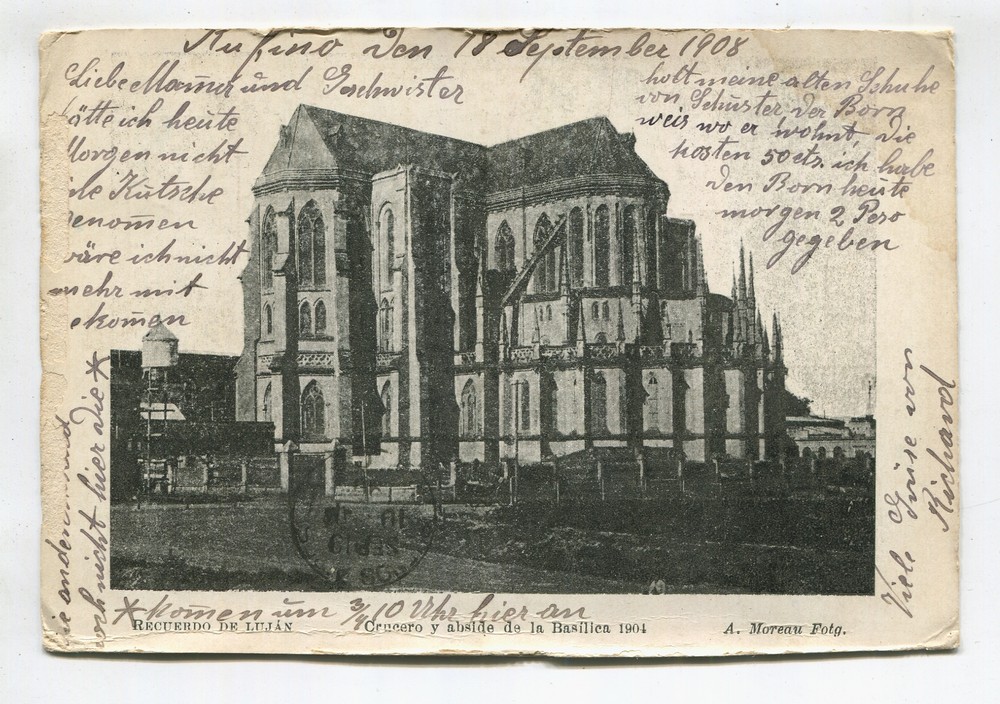 Rufino den 18 September 1908
Liebe Mam̄a und Geschwister
ätte ich heute
Morgen nicht
die Kutsche
enom̄en
väre ich nicht
mehr mit
ekom̄en
holt meine alten Schuhe
von Schuster der Born
weis wo er wohnt, die
kosten 50 cts. ich habe
den Born heute
morgen 2 Peso
gegeben
Viele Grüse von
Richard
ie anderen sind
och nicht hier die *
* kom̄en um ¾ 10 Uhr hier an
SEP 19
RECUERDO DE LUJÁN
Crucero y abside de la Basílica 1904
A. Moreau Fotg.